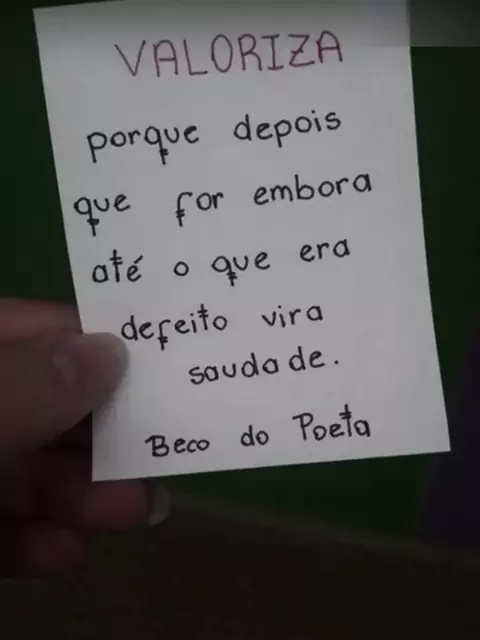 VALORIZA
porque depois
que for embora
até o que era
defeito vira
saudade.
Beco do Poeta